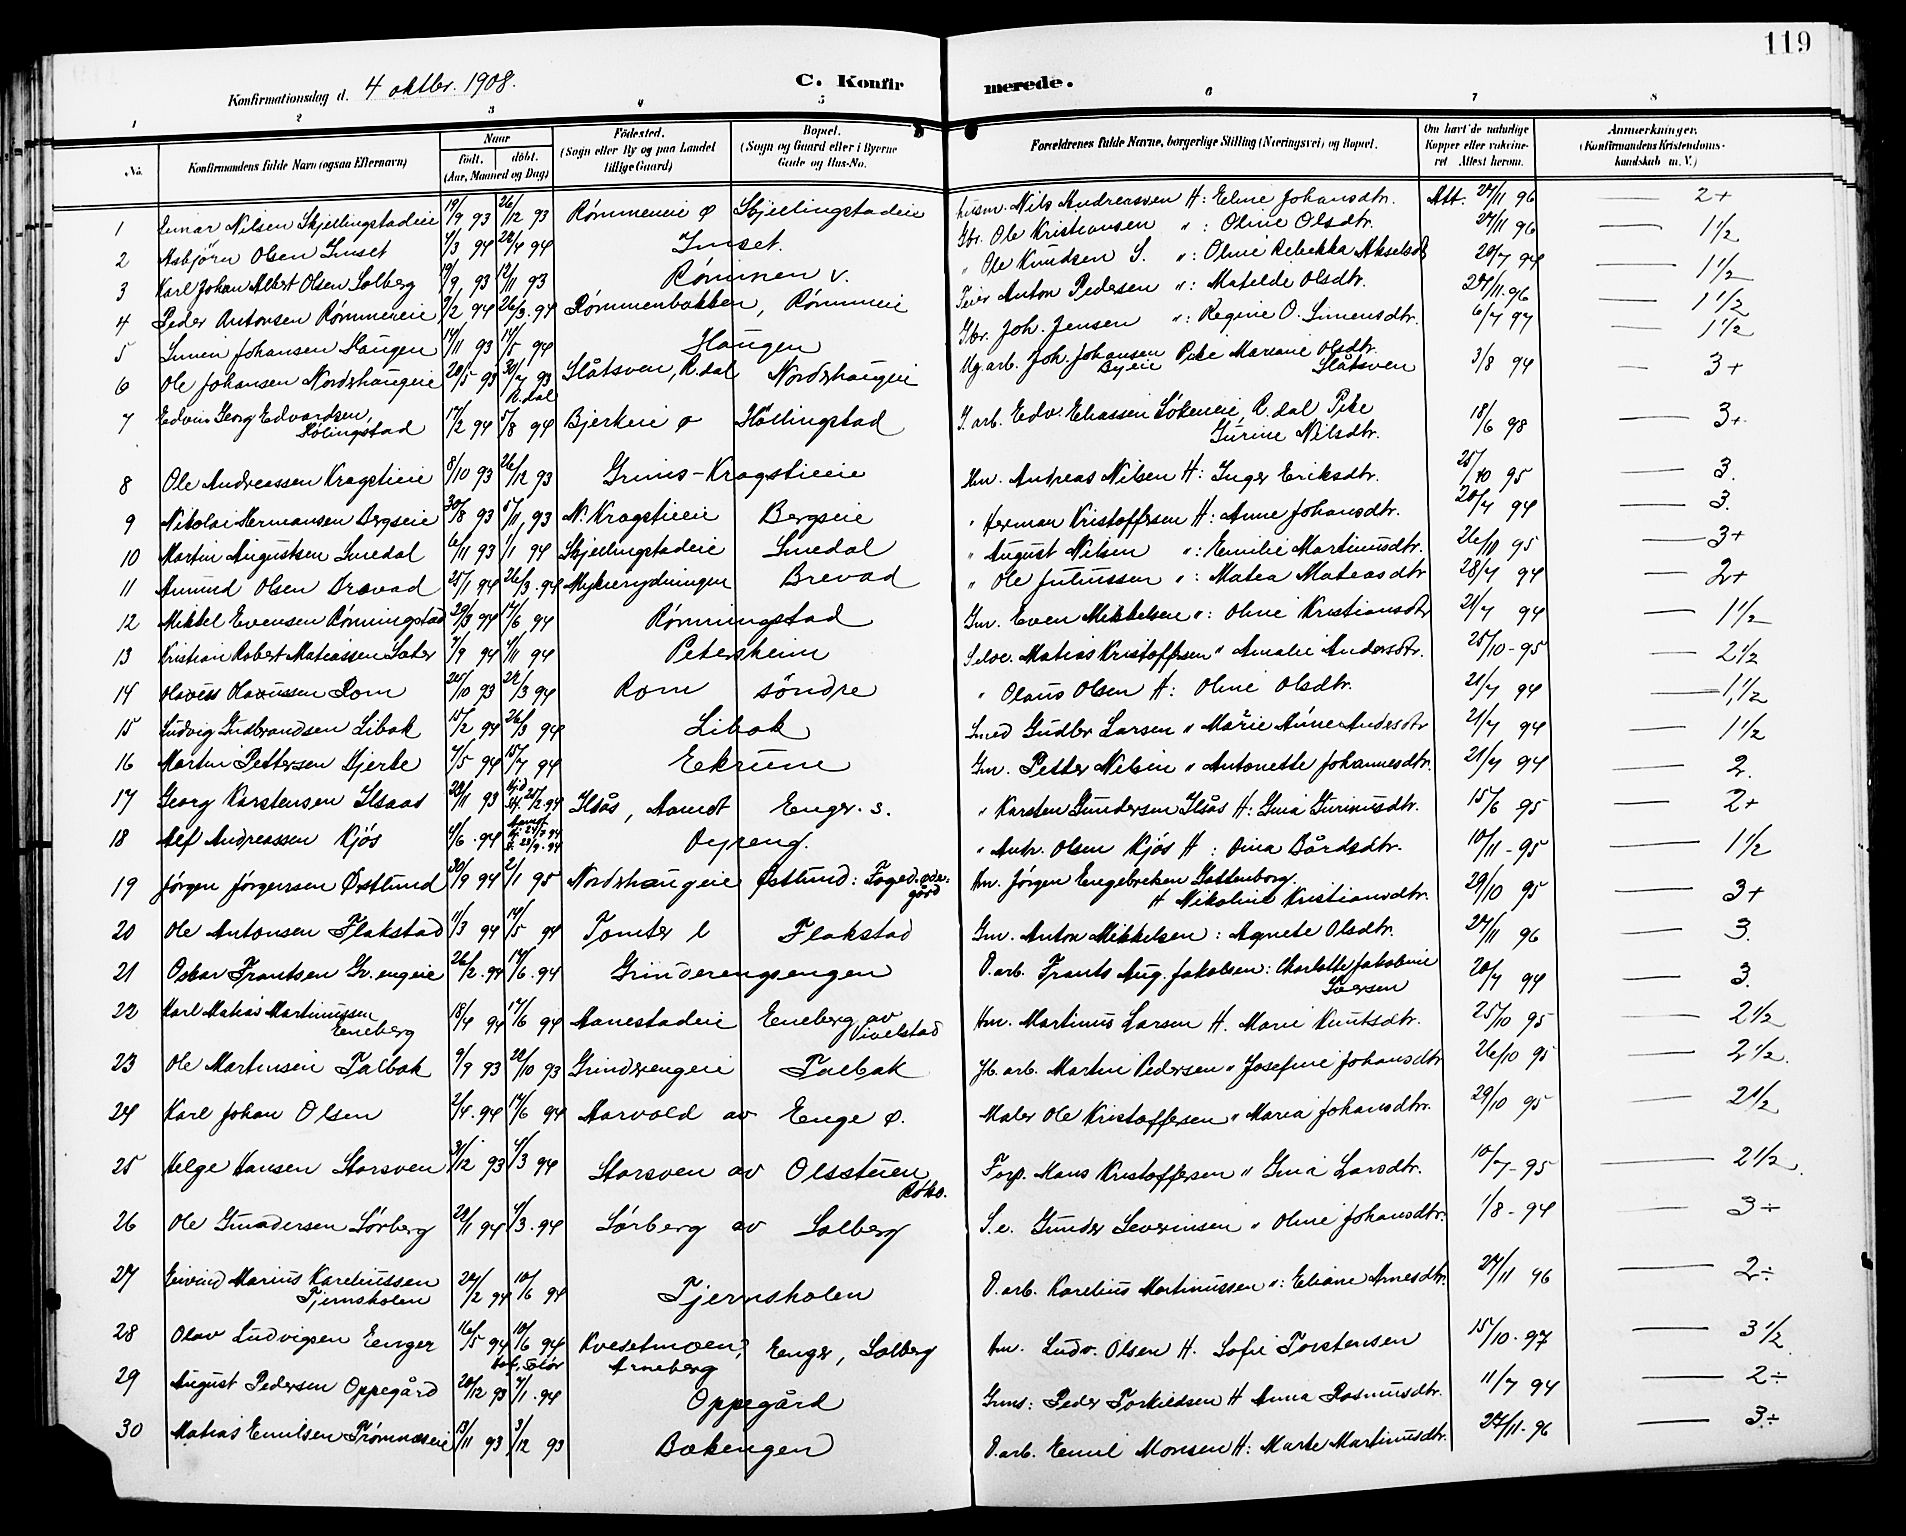 119
Konfirmationsdag d. 4 oktbr. 1908. C. Konfirmerede.
1 2 3 4 5 6 7 8
No. Konfirmandens fulde Navn (ogsaa Efternavn) Naar født. døbt. (Aar, Maaned og Dag) Fødested. (Sogn eller By og paa Landet tillige Gaard) Bopæl. (Sogn og Gaard eller i Byerne Gade og Hus-No. Forældrenes fulde Navne, borgerlige Stilling (Næringsvei) og Bopæl. Om havt de naturlige Kopper eller vaksineret Attest herom. Anmærkninger. (Konfirmandens Kristendomskundskab m. V.)
1 Einar Nilsen Skjellingstadeie 19/9 93 26/12 93 Rømmeneie ø Skjellingstadeie husm. Nils Andreassen H: Eline Johansdtr. Att. 27/11 96 2+
2 Asbjørn Olsen Imset 4/3 94 22/4 94 Imset. Gbr. Ole Kristiansen ": Oline Olsdtr. 27/11 96 1 1/2
3 Karl Johan Albert Olsen Solberg 19/9, 93 12/11 93 Rømmen v. " Ole Knudsen S. ": Oline Rebekka Akselsd 20/7 94 1 1/2
4 Peder Antonsen Rømmeneie 2/2 94 26/3. 94 Rømmenbakken, Rømmeie Feier Anton Pedersen ": Matelde Olsdtr. 27/11. 96 1 1/2
5 Simen Johansen Haugen 14/11 93 14/5 94 Haugen Gbr. Joh. Jensen ": Regine O. Simensdtr. 6/7 97 1 1/2
6 Ole Johansen Nordshaugeie 20/5 93 30/7 93 R.dal Slåtsven, R.dal Nordshaugeie Ug. arb. Joh. Johansen Byeie Pike Mariane Olsdtr. Slåtsven 3/8 94 3+
7 Edvin Georg Edvardsen, Hölingstad 17/2 94 5/8 94 Bjerkeie ø Höllingstad G. arb. Edv. Eliassen Lökeneie, R.dal Pike Gúrine Nilsdtr. 18/6 98 3+
8 Ole Andreassen Kragstieie 8/10 93 26/12 93 Grims-Kragstieie Hm. Andreas Nilsen H: Inger Eriksdtr. 25/10 95 3.
9 Nikolai Hermansen Bergseie 30/8 93 5/11, 93 N. Kragstieie Bergseie " Herman Kristoffersen H: Anne Johansdtr. 20/7 94 3.
10 Martin Augustsen Smedal 6/11 93 1/1 94 Skjellingstadeie Smedal " August Nilsen ": Emilie Martinusdtr. 26/11 95 3+
11 Amund Olsen Brevad 25/1 94 26/3. 94 Mykerrydningen Brevad " Ole Juliussen ": Matea Mateasdtr 28/7 94 2+
12 Mikkel Evensen Rønningstad 29/3 94 17/6 94 Rønningstad Gm. Even Mikkelsen ": Oline Kristiansdtr 21/7 94 1 1/2
13 Kristian Robert Matiassen Sæter 7/9 94 4/11 94 Petersheim Selve. Matias Kristoffersen " Amalie Andersdtr. 25/10 - 95 2 1/2
14 Olaves Olavussen Rom 24/10 93 22/3 94 Rom söndre " Olaus Olsen H: Oline Olsdtr. 21/7 94 1 1/2
15 Ludvig Gudbrandsen Libak 15/2 94 26/3 94 Libak Smed Gudbr Larsen " Marie Anne Andersdtr 21/7 94 1 1/2
16 Martin Pettersen Bjerke 4/5 94 15/7 94 Ekrúne Gm. Petter Nilsen " Antonette Johannesdtr. 21/7 94 2.
17 Georg Karstensen Ilsaas 28/11 93 25/2 94 Ilsås, Aamot Enger. s. " Karsten Gundersen Ilsås H: Gina Gurinusdtr. 15/6 95 2+
18 Alf Andreassen Kjós 4/6. 94 23/9. 94 Oupreng. " Antr. Olsen Kjós H: Oina Bårdsdtr. 10/11 - 95 1 1/2
19 Jørgen Jørgenssen Østlund 30/9 94 2/1 95 Nordshaugeie Østlund: Foged-ødegård Hm. Jørgen Engebretsen Gattenborg. H Nikoline Kristiansdtr. 29/10 95 3+
20 Ole Antonsen Flakstad 11/3 94 14/5 94 Tomter l Flakstad Gm. Anton Mikkelsen: Agnete Olsdtr. 27/11 96 3.
21 Oskar Frantsen Gr.engeie 26/2. 94 17/6. 94 Grinderengsengen D. arb. Frants Aug. Jakobsen: Charlotte Jakobine Iversen 20/7 94 3.
22 Karl Matias Martinussen Eeneberg 18/4 94 17/6 94 Aanestadeie Eeneberg av Vivelstad Hm. Martinus Larsen H. Marie Knutsdtr. 25/10 95 2 1/2
23 Ole Martinsen Talbak 9/9 93 22/10 93 Grinderengeie Talbak Jb. arb. Martin Pedersen " Josefine Johansdtr 26/10 95 2 1/2.
24 Karl Johan Olsen 2/4. 94 17/6 94 Aarvold av Eenge ø. Maler Ole Kristoffersen " Maria Johansdtr. 29/10 95 2 1/2
25 Helge Hansen Storsven 31/12 93 4/3 94 Storsven av Olsstuen Røko. Forp. Hans Kristoffersen " Gina Larsdtr. 10/7 - 95 2 1/2.
26 Ole Gundersen Sórberg 29/1 94 4/3. 94 Sórberg av Solberg S. e. Gunder Severinsen " Oline Johansdtr. 1/8 - 94 3÷
27 Eivind Marius Kareliussen Tjernsholen 22/2 94 10/6 94 Tjernsholen D. arb. Karelius Martinussen ": Eliane Arnesdtr. 27/11 96 2÷
28 Olav Ludvigsen Eenger 16/5 94 10/6 94 Hof, Solør Kvesetmoen, Arneberg Eenger, Solberg Hm. Ludv. Olsen H. Sofie Torstensen 15/10. 97 3 1/2
29 August Pedersen Oppegård 20/12 93 7/1. 94 Oppegård Grms: Peder Torkildsen H Anna Rasmusdtr. 11/7 94 2÷
30 Matias Emilsen Prømnæseie 13/11 93 3/12 93 Bakengen D. arb. Emil Monsen H: Marte Martinusdtr. 27/11. 96 3÷